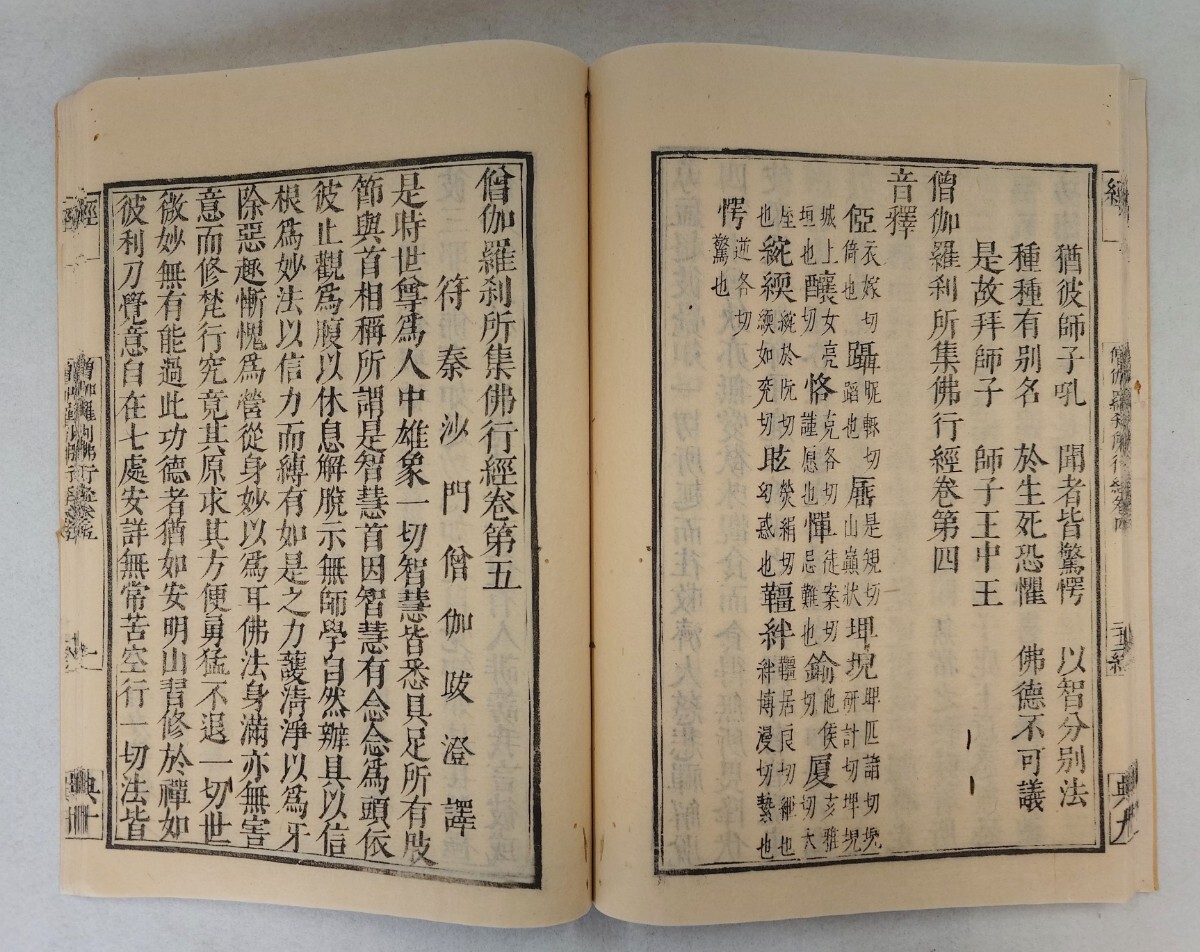 猶彼師子吼 聞者皆驚愕 以智分別法
種種有別名 於生死恐懼 佛德不可議
是故拜師子 師子王中王
僧伽羅刹所集佛行經卷第四
音釋
俹衣嫁切倚也 躡昵輒切蹈也 厜是規切山巔狀 埤堄埤匹詣切堄研計切埤堄
城上垣也 釀女亮切 恪克各切謹愿也 憚徒案切忌難也 鍮他侯切 厦亥雅切大
屋也 綩緛綩於阮切緛如兖切 眩熒絹切幻惑也 韁絆韁居良切紲也絆博漫切縶也
愕逆各切驚也
典九
僧伽羅刹所集佛行經卷第五
符秦沙門僧伽跋澄譯
是時世尊爲人中雄象一切智慧皆悉具足所有肢
節與首相稱所謂是智慧首因智慧有念念爲頭依
彼止觀爲腹以休息解脫示無師學自然辦具以信
根爲妙法以信力而縛有如是之力護清淨以爲牙
除惡趣慚愧爲營從身妙以爲耳佛法身滿亦無害
意而修梵行究竟其原求其方便勇猛不退一切世
微妙無有能過此功德者猶如安明山習修於禪如
彼利刀覺意自在七處安詳無常苦空行一切法皆
經
典十